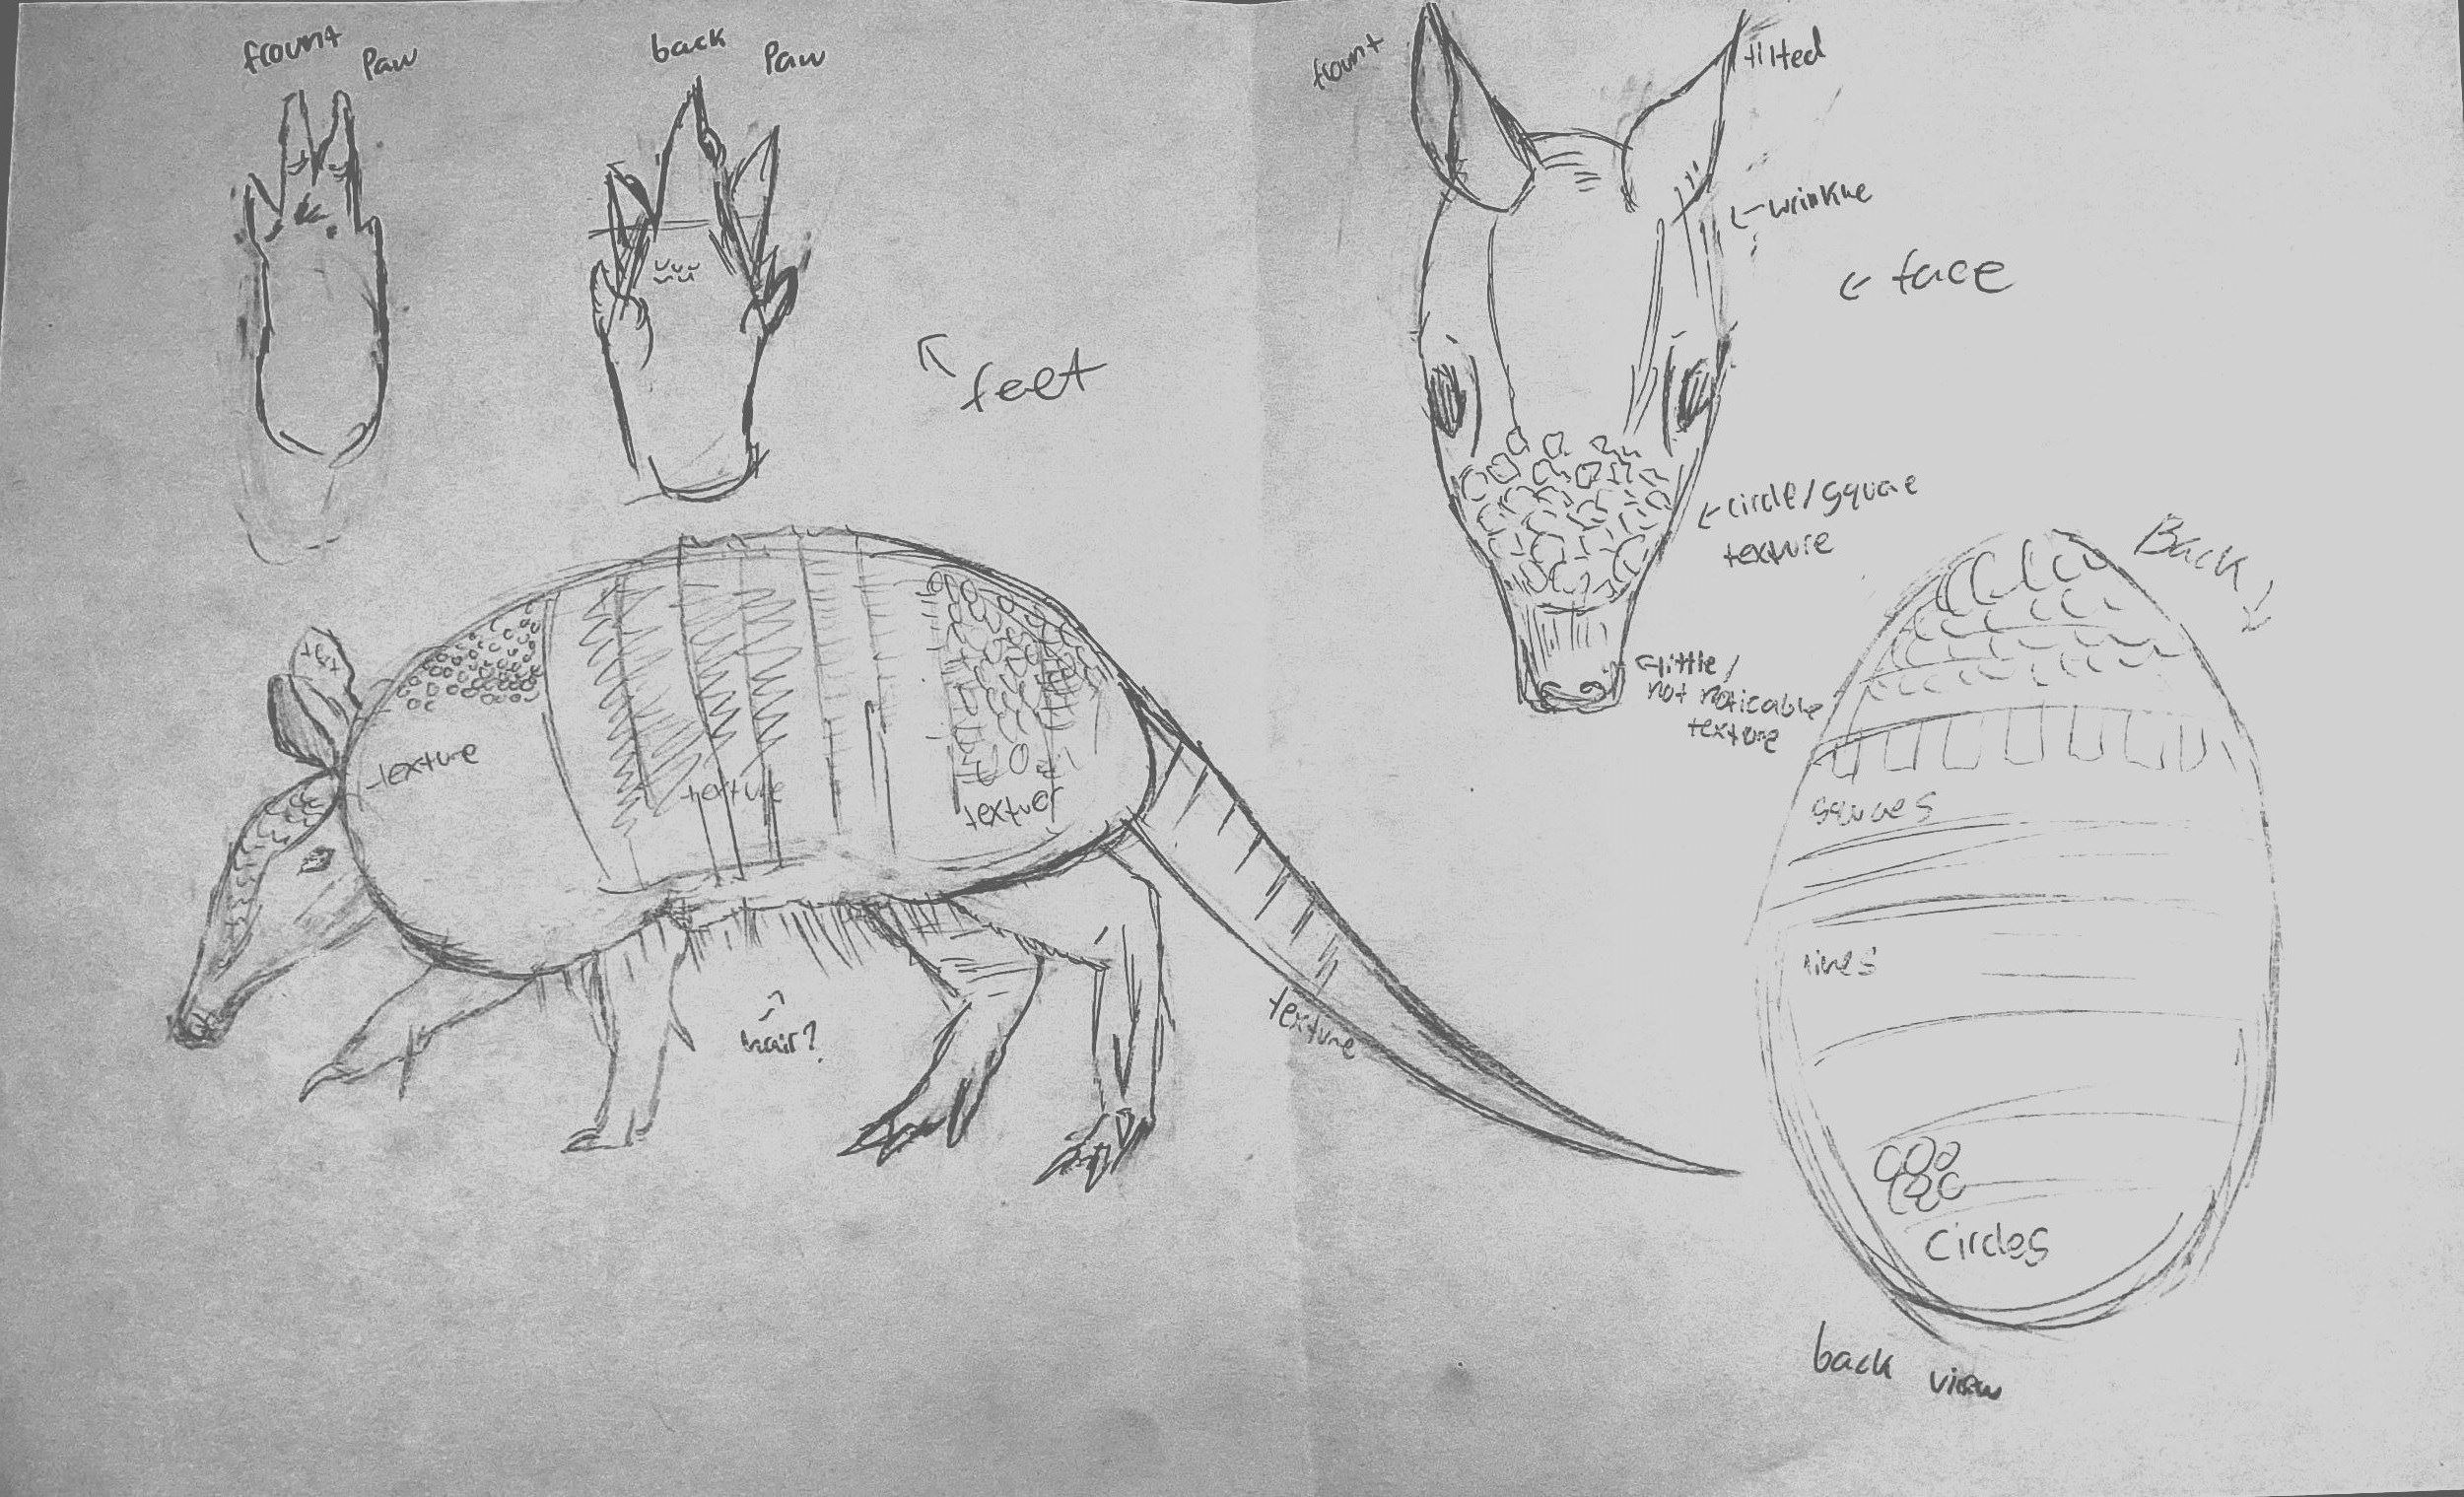 frount Paw
back Paw
feet
frount
tilted
wrinkue
face
circle/squae
texture
little/
not noticable
texture
Back
texture
texture
textuer
hair?
texture
squaes
lines
circles
back view